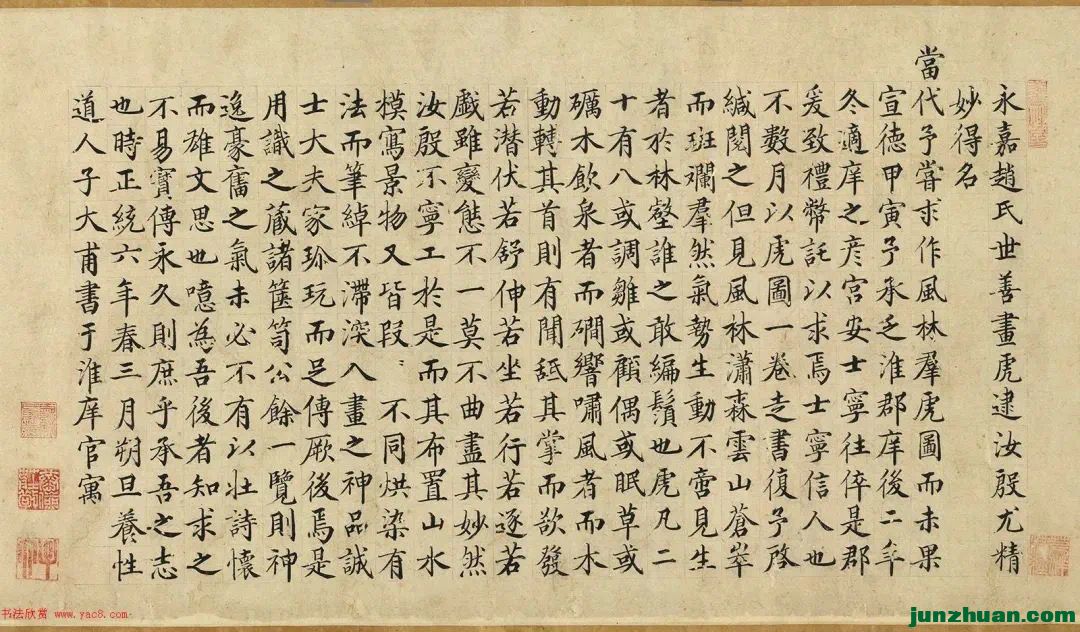 永嘉趙氏世善畫虎逮汝殷尤精
妙得名
當代予嘗求作風林羣虎圖而未果
宣德甲寅予承乏淮郡庠後二年
冬適庠之彦宫安士寧往倅是郡
爰致禮幣託以求焉士寧信人也
不數月以虎圖一卷走書復予啓
緘閱之但見風林瀟森雲山蒼崒
而斑斕羣然氣勢生動不啻見生
者於林壑誰之敢編鬚也虎凡二
十有八或調雛或顧偶或眠草或
礪木飲泉者而磵響嘯風者而木
動轉其首則有聞舐其掌而欲發
若潜伏若舒伸若坐若行若逐若
戲雖變態不一莫不曲盡其妙然
汝殷不寧工於是而其布置山水
模寫景物又皆叚不同烘染有
法而筆綽不滯深入畫之神品誠
士大夫家珎玩而足傳厥後焉是
用識之蔵諸篋笥公餘一覽則神
逸豪奮之氣未必不有以壮詩懷
而雄文思也噫為吾後者知求之
不易寳傳永久則庶乎承吾之志
也時正統六年春三月朔旦養性
道人子大甫書于淮庠官寓
书法欣赏 www.yac8.com
junzhuan.com